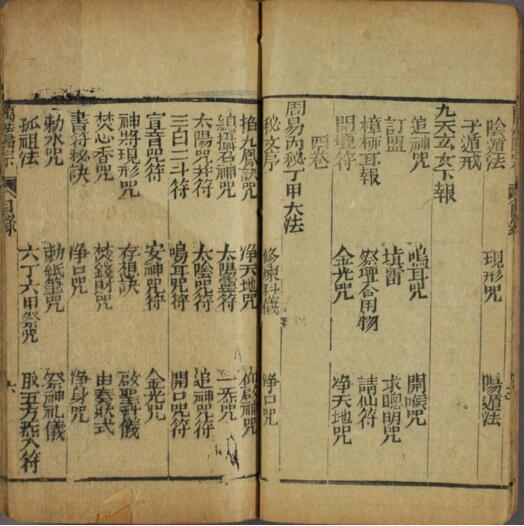 陰遁法 現形咒 陽遁法
子遁戒
九天玄女卞報
追神咒 鳴耳咒 開喉咒
訂盟 填雷 求聰明咒
樟柳耳報 祭壇合用物 請仙符
開壇符 金光咒 净天地咒
四卷
周易內秘丁甲大法
秘文序 修煉科儀 净口咒
掐九鳳訣咒 净天地咒 仰啟神咒
總攝召神咒 太陽靈符 一炁咒
太陽咒并符 太陰咒符 追神咒符
三百二斗符 鳴耳咒符 開口咒符
宣音咒符 安神咒符 金光咒
神將現形咒 存想訣 啟聖科儀
焚心香咒 焚錢財咒 由奏欵式
書符秘訣 净口咒 净身咒
勅水咒 勅紙筆咒 祭神礼儀
孤祖法 六丁六甲祭咒 取五方炁入符
萬法歸宗 目錄 六